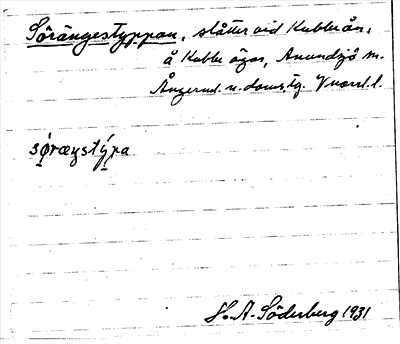 Sörängestyppan, slåtter vid Kubbeån,
å Kubbe ägor, Anundsjö sn.
Ångerml. n. doms.tg. Vnorrl. l.
sǿræŋstýpa
H. A. Söderberg 1931